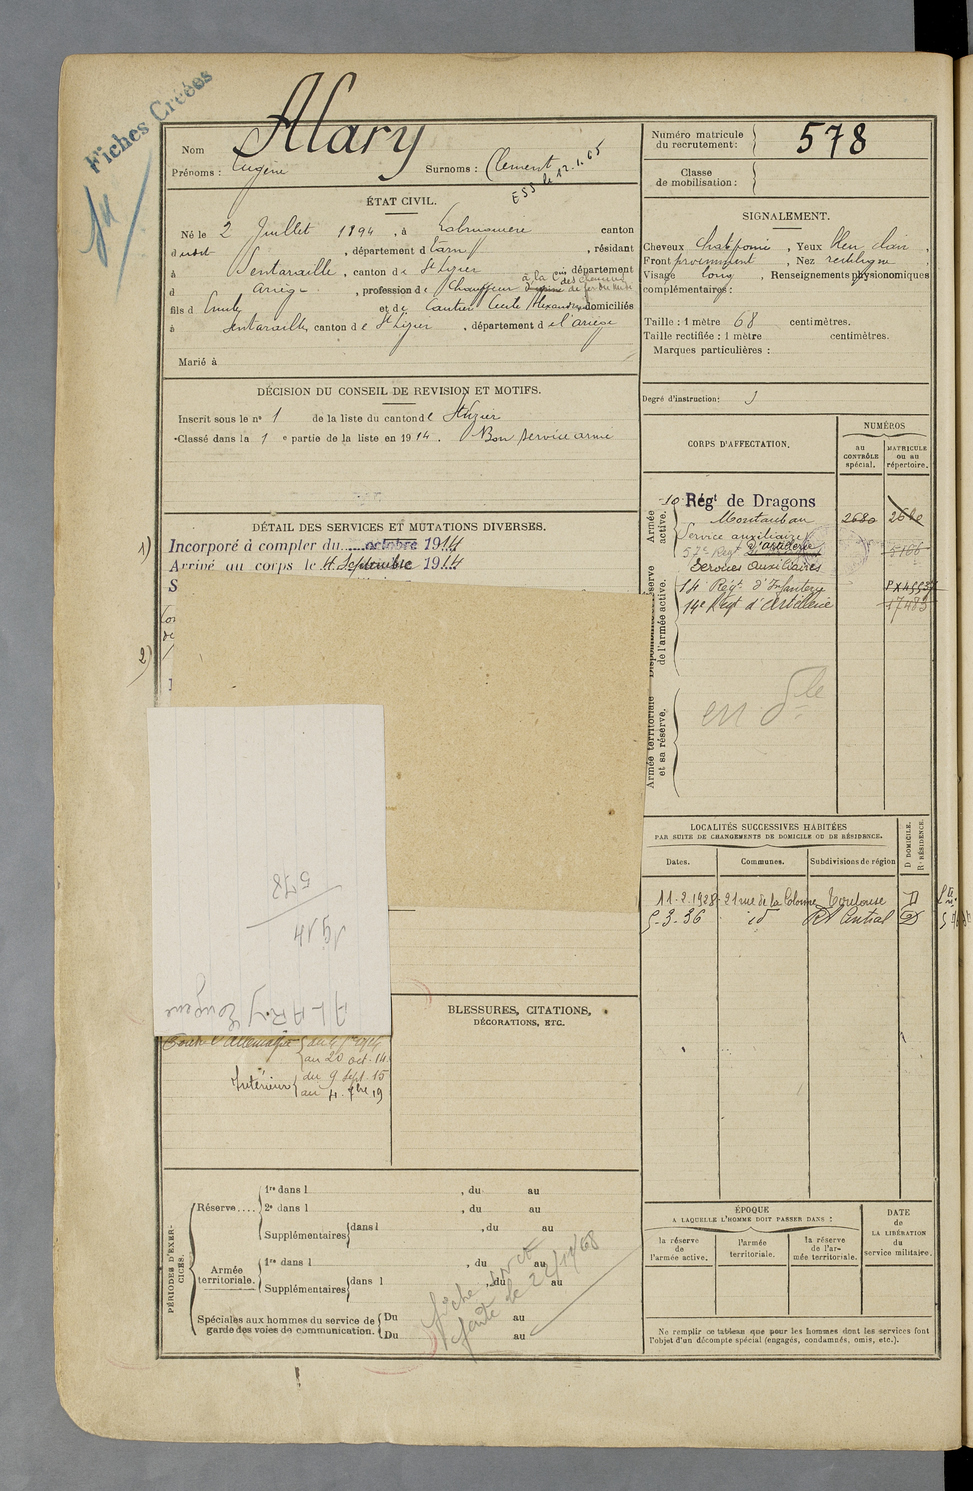 Fiches Créées
Nom Alary
Prénoms : Eugène Surnoms : Clément
ESS le 12.1.65
Numéro matricule du recrutement : 578
Classe de mobilisation :
ÉTAT CIVIL.
Né le 2 Juillet 1894, à Labruguière canton
dudit, département d Tarn, résidant
à Sentaraille, canton de St Lizier département
d Ariège, profession de Chauffeur à la Cie des chemins de fer du Midi
fils d Emile et de Cautier Cecile Alexandrine domiciliés
à Sentaraille, canton de St Lizier, département de l'ariège
Marié à
SIGNALEMENT.
Cheveux Chat. foncé, Yeux bleu clair,
Front proéminent, Nez rectiligne,
Visage long, Renseignements physionomiques
complémentaires :
Taille : 1 mètre 68 centimètres.
Taille rectifiée : 1 mètre centimètres.
Marques particulières :
Degré d'instruction : 3
DÉCISION DU CONSEIL DE REVISION ET MOTIFS.
Inscrit sous le n° 1 de la liste du canton de St Lizier
Classé dans la 1 e partie de la liste en 1914. Bon service armé
CORPS D'AFFECTATION.
NUMÉROS
au CONTRÔLE spécial.
MATRICULE ou au répertoire.
Armée active.
10 Régt de Dragons
Montauban 2680 2680
Service auxiliaire
57e Regt d'artillerie 5166
Services Auxiliaires
14 Regt d'Infanterie
14e Régt d'Artillerie 17483
de l'armée active.
Armée territoriale et sa réserve.
en dle
DÉTAIL DES SERVICES ET MUTATIONS DIVERSES.
1) Incorporé à compter du octobre 1914
Arrivé au corps le 4 Septembre 1914
S
2)
578
1914
ALARY Eugène
Contre l'Allemagne
au 20 oct. 14.
Intérieur du 9 Sept. 15
au 4. 7bre 19
BLESSURES, CITATIONS,
DÉCORATIONS, ETC.
LOCALITÉS SUCCESSIVES HABITÉES
PAR SUITE DE CHANGEMENTS DE DOMICILE OU DE RÉSIDENCE.
Dates. Communes. Subdivisions de région
D. DOMICILE.
R. RÉSIDENCE.
11-2-1928 21 rue de la Colonne Toulouse D
5-3-36 id Rt Central D
PÉRIODES D'EXERCICES.
Réserve....
1re dans l , du au
2e dans l , du au
Supplémentaires dans l , du au
Armée territoriale.
1re dans l , du au
Supplémentaires dans l , du au
Spéciales aux hommes du service de garde des voies de communication.
Du au
Du au
fiche
faite le 22/11/68
ÉPOQUE
A LAQUELLE L'HOMME DOIT PASSER DANS :
la réserve de l'armée active.
l'armée territoriale.
la réserve de l'armée territoriale.
DATE de LA LIBÉRATION du service militaire.
Ne remplir ce tableau que pour les hommes dont les services font
l'objet d'un décompte spécial (engagés, condamnés, omis, etc.).